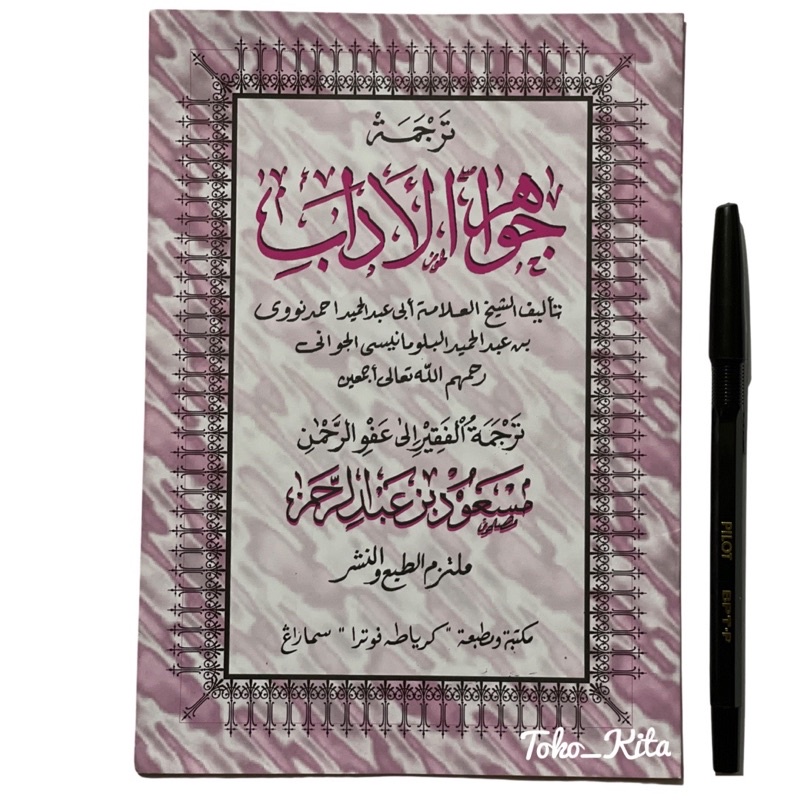 تَرْجَمَةْ
جَوَاهِرُ الْاَدَابِ
تأليف الشيخ العلامة أبى عبد الحميد احمد نووى
بن عبد الحميد البلومانيسى الجوانى
رحمهم الله تعالى أجمعين
تَرْجَمَةُ الْفَقِيْرِ اِلَى عَفْوِ الرَّحْمٰنِ
مَسْعُوْد بن عَبْدِ الرَّحْمٰن
ملتزم الطبع والنشر
مكتبة ومطبعة "كرياطه فوترا" سماراڠ
PILOT BPT-P
Toko_Kita